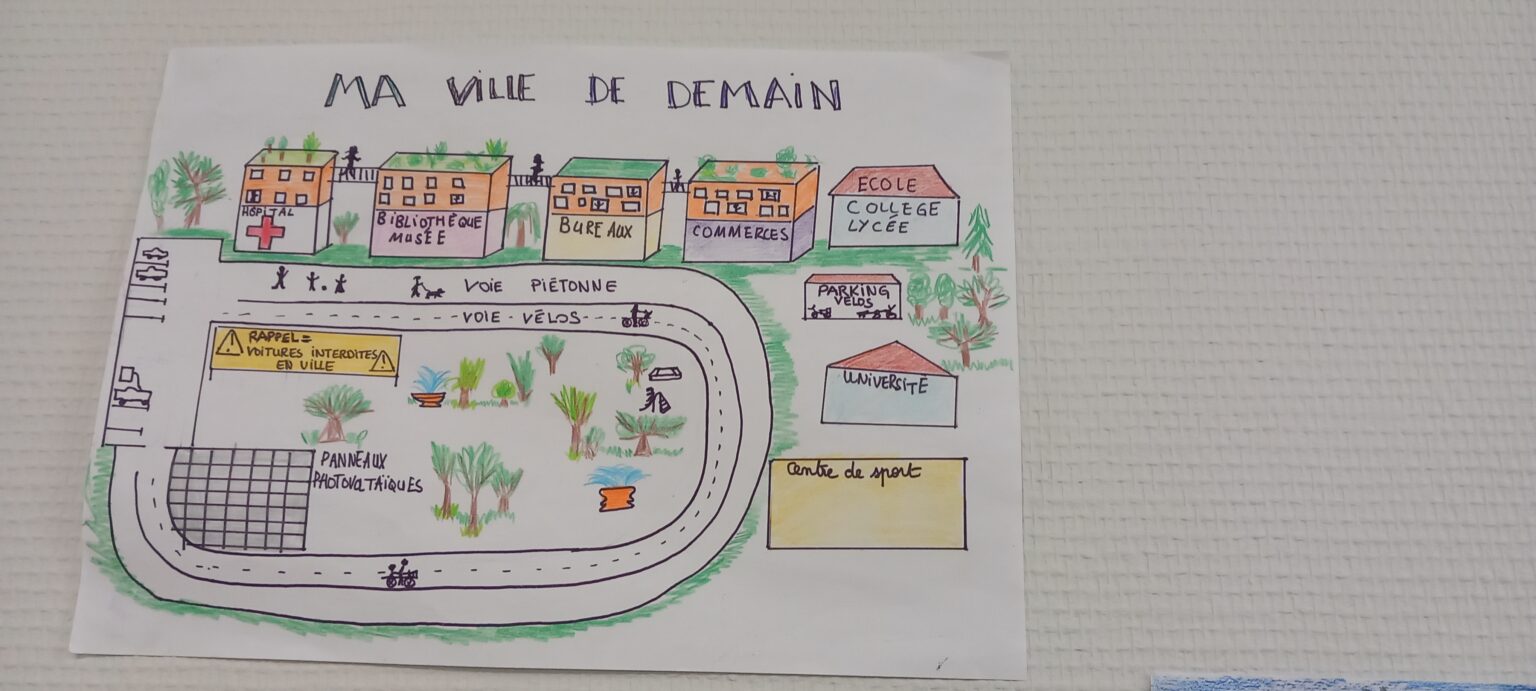 MA VILLE DE DEMAIN
HÔPITAL
BIBLIOTHÈQUE
MUSÉE
BUREAUX
COMMERCES
ECOLE
COLLEGE
LYCÉE
VOIE PIÉTONNE
VOIE VÉLOS
PARKING
VÉLOS
RAPPEL=
VOITURES INTERDITES
EN VILLE
UNIVERSITÉ
PANNEAUX
PHOTOVOTAÏQUES
Centre de sport